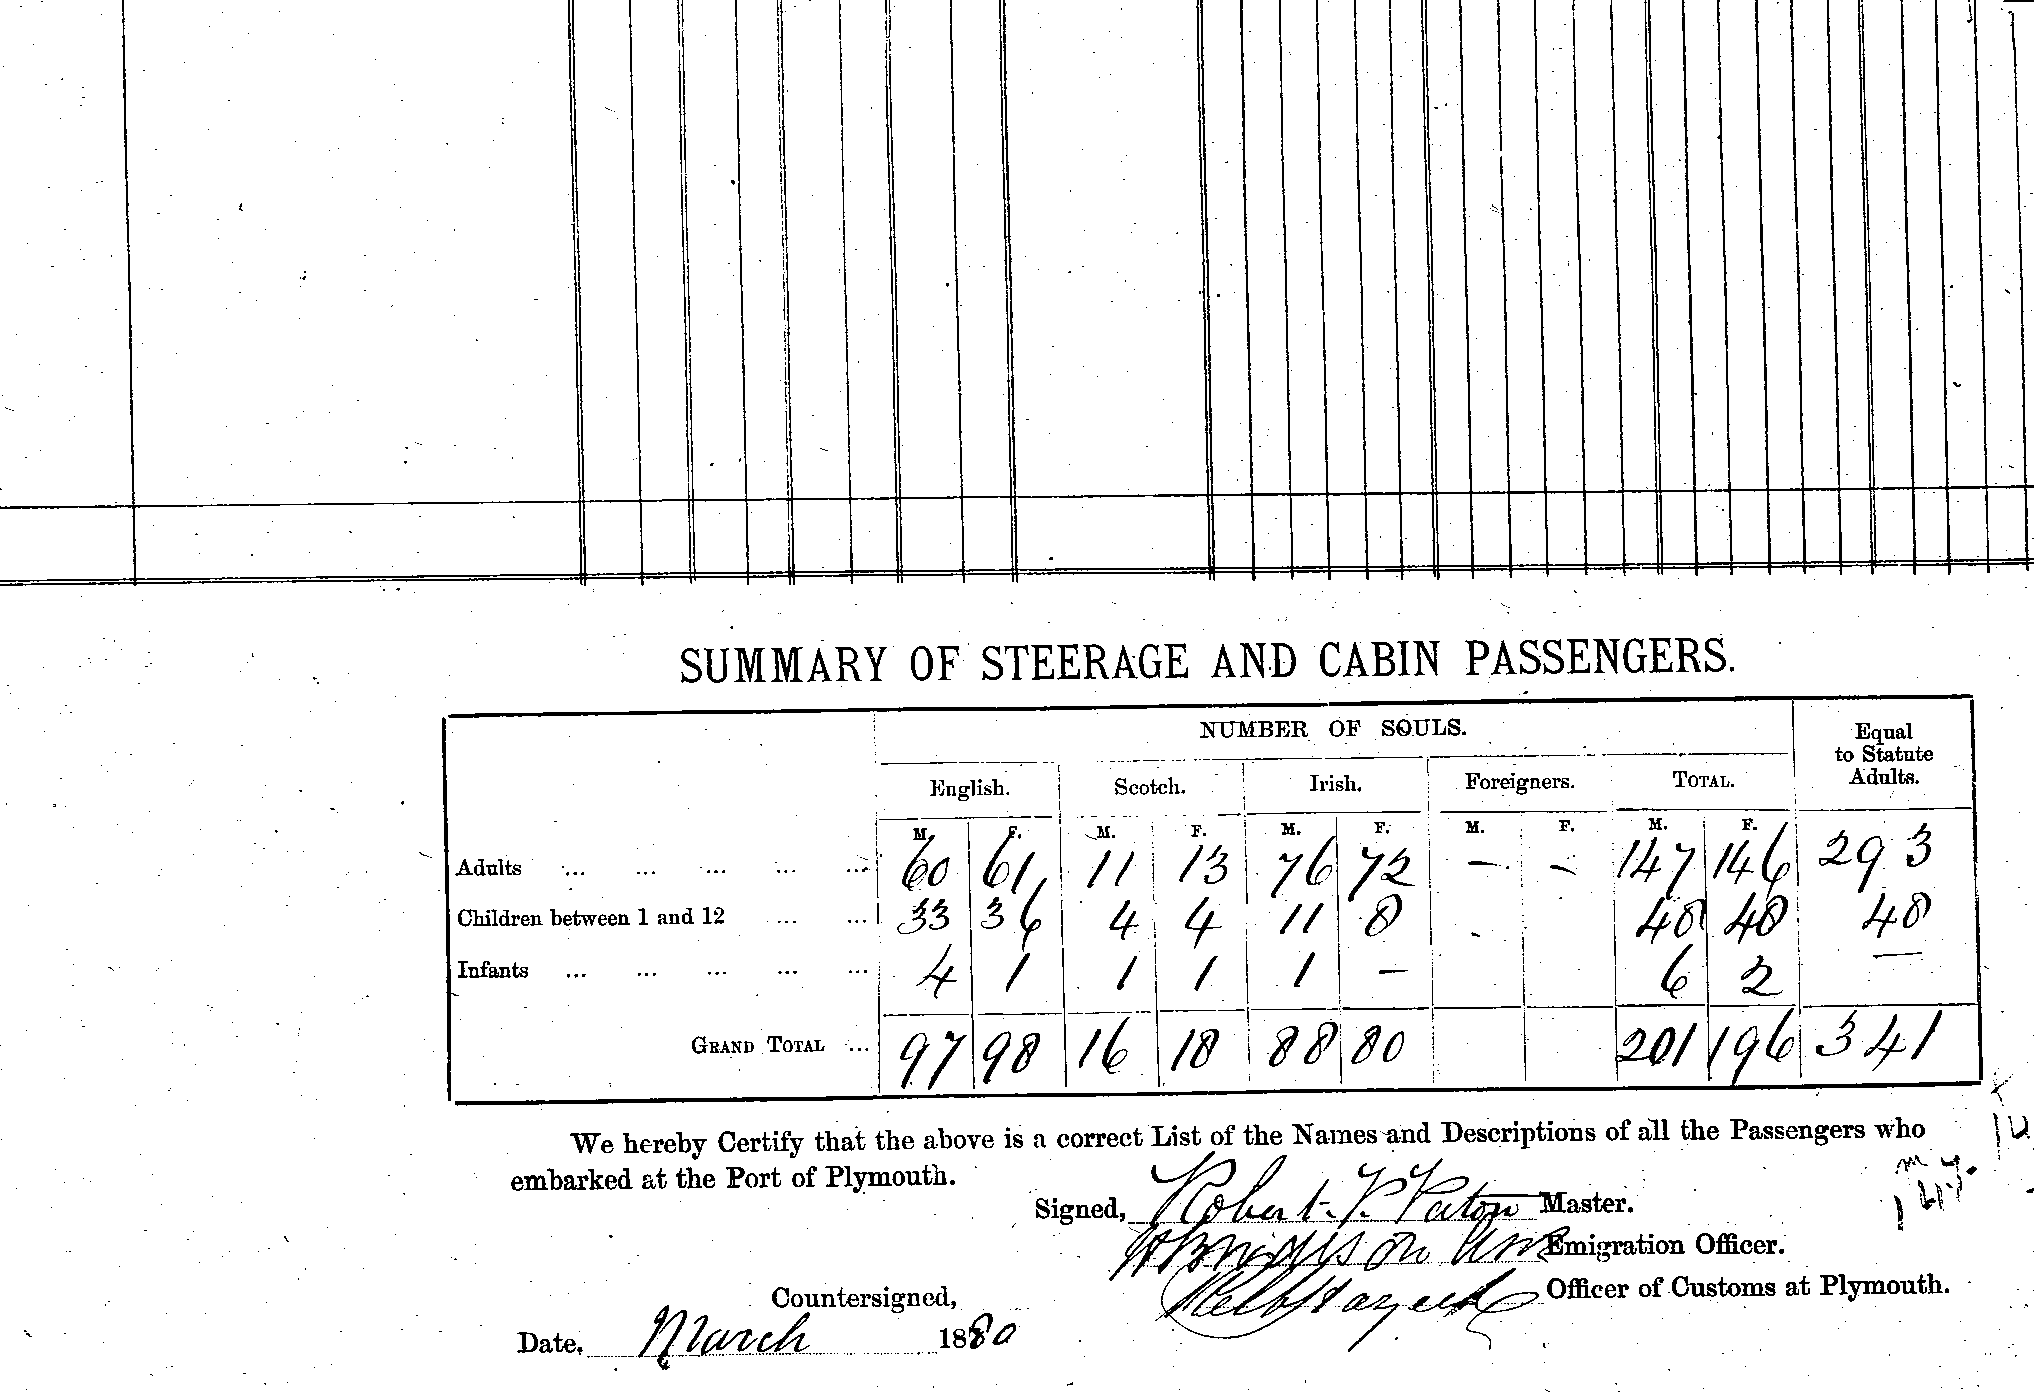 SUMMARY OF STEERAGE AND CABIN PASSENGERS.
NUMBER OF SOULS. Equal to Statute Adults.
English. Scotch. Irish. Foreigners. TOTAL.
M. F. M. F. M. F. M. F. M. F.
Adults ... ... ... ... ... 60 61 11 13 76 72 – – 147 146 293
Children between 1 and 12 ... ... 33 36 4 4 11 8 48 48 48
Infants ... ... ... ... ... 4 1 1 1 1 – 6 2 —
GRAND TOTAL ... 97 98 16 18 88 80 201 196 341
We hereby Certify that the above is a correct List of the Names and Descriptions of all the Passengers who
embarked at the Port of Plymouth.
Signed, Robert. P. Paton Master.
Emigration Officer.
Officer of Customs at Plymouth.
Countersigned,
Date, March 1880